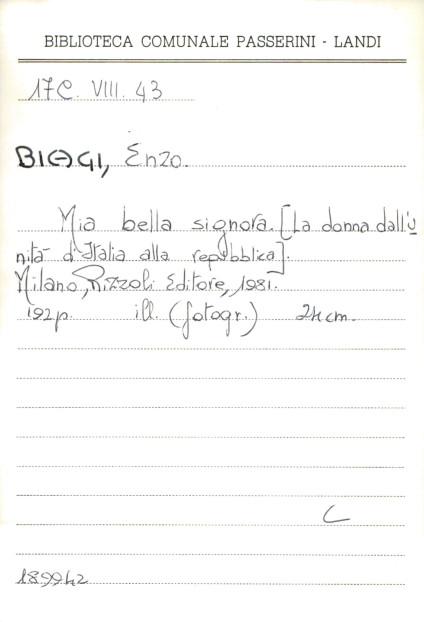 BIBLIOTECA COMUNALE PASSERINI - LANDI
17C. VIII. 43
BIAGI, Enzo.
Mia bella signora. [La donna dall'u
nità d'Italia alla repubblica].
Milano, Rizzoli Editore, 1981.
192 p. ill. (fotogr.) 24 cm.
C
189942